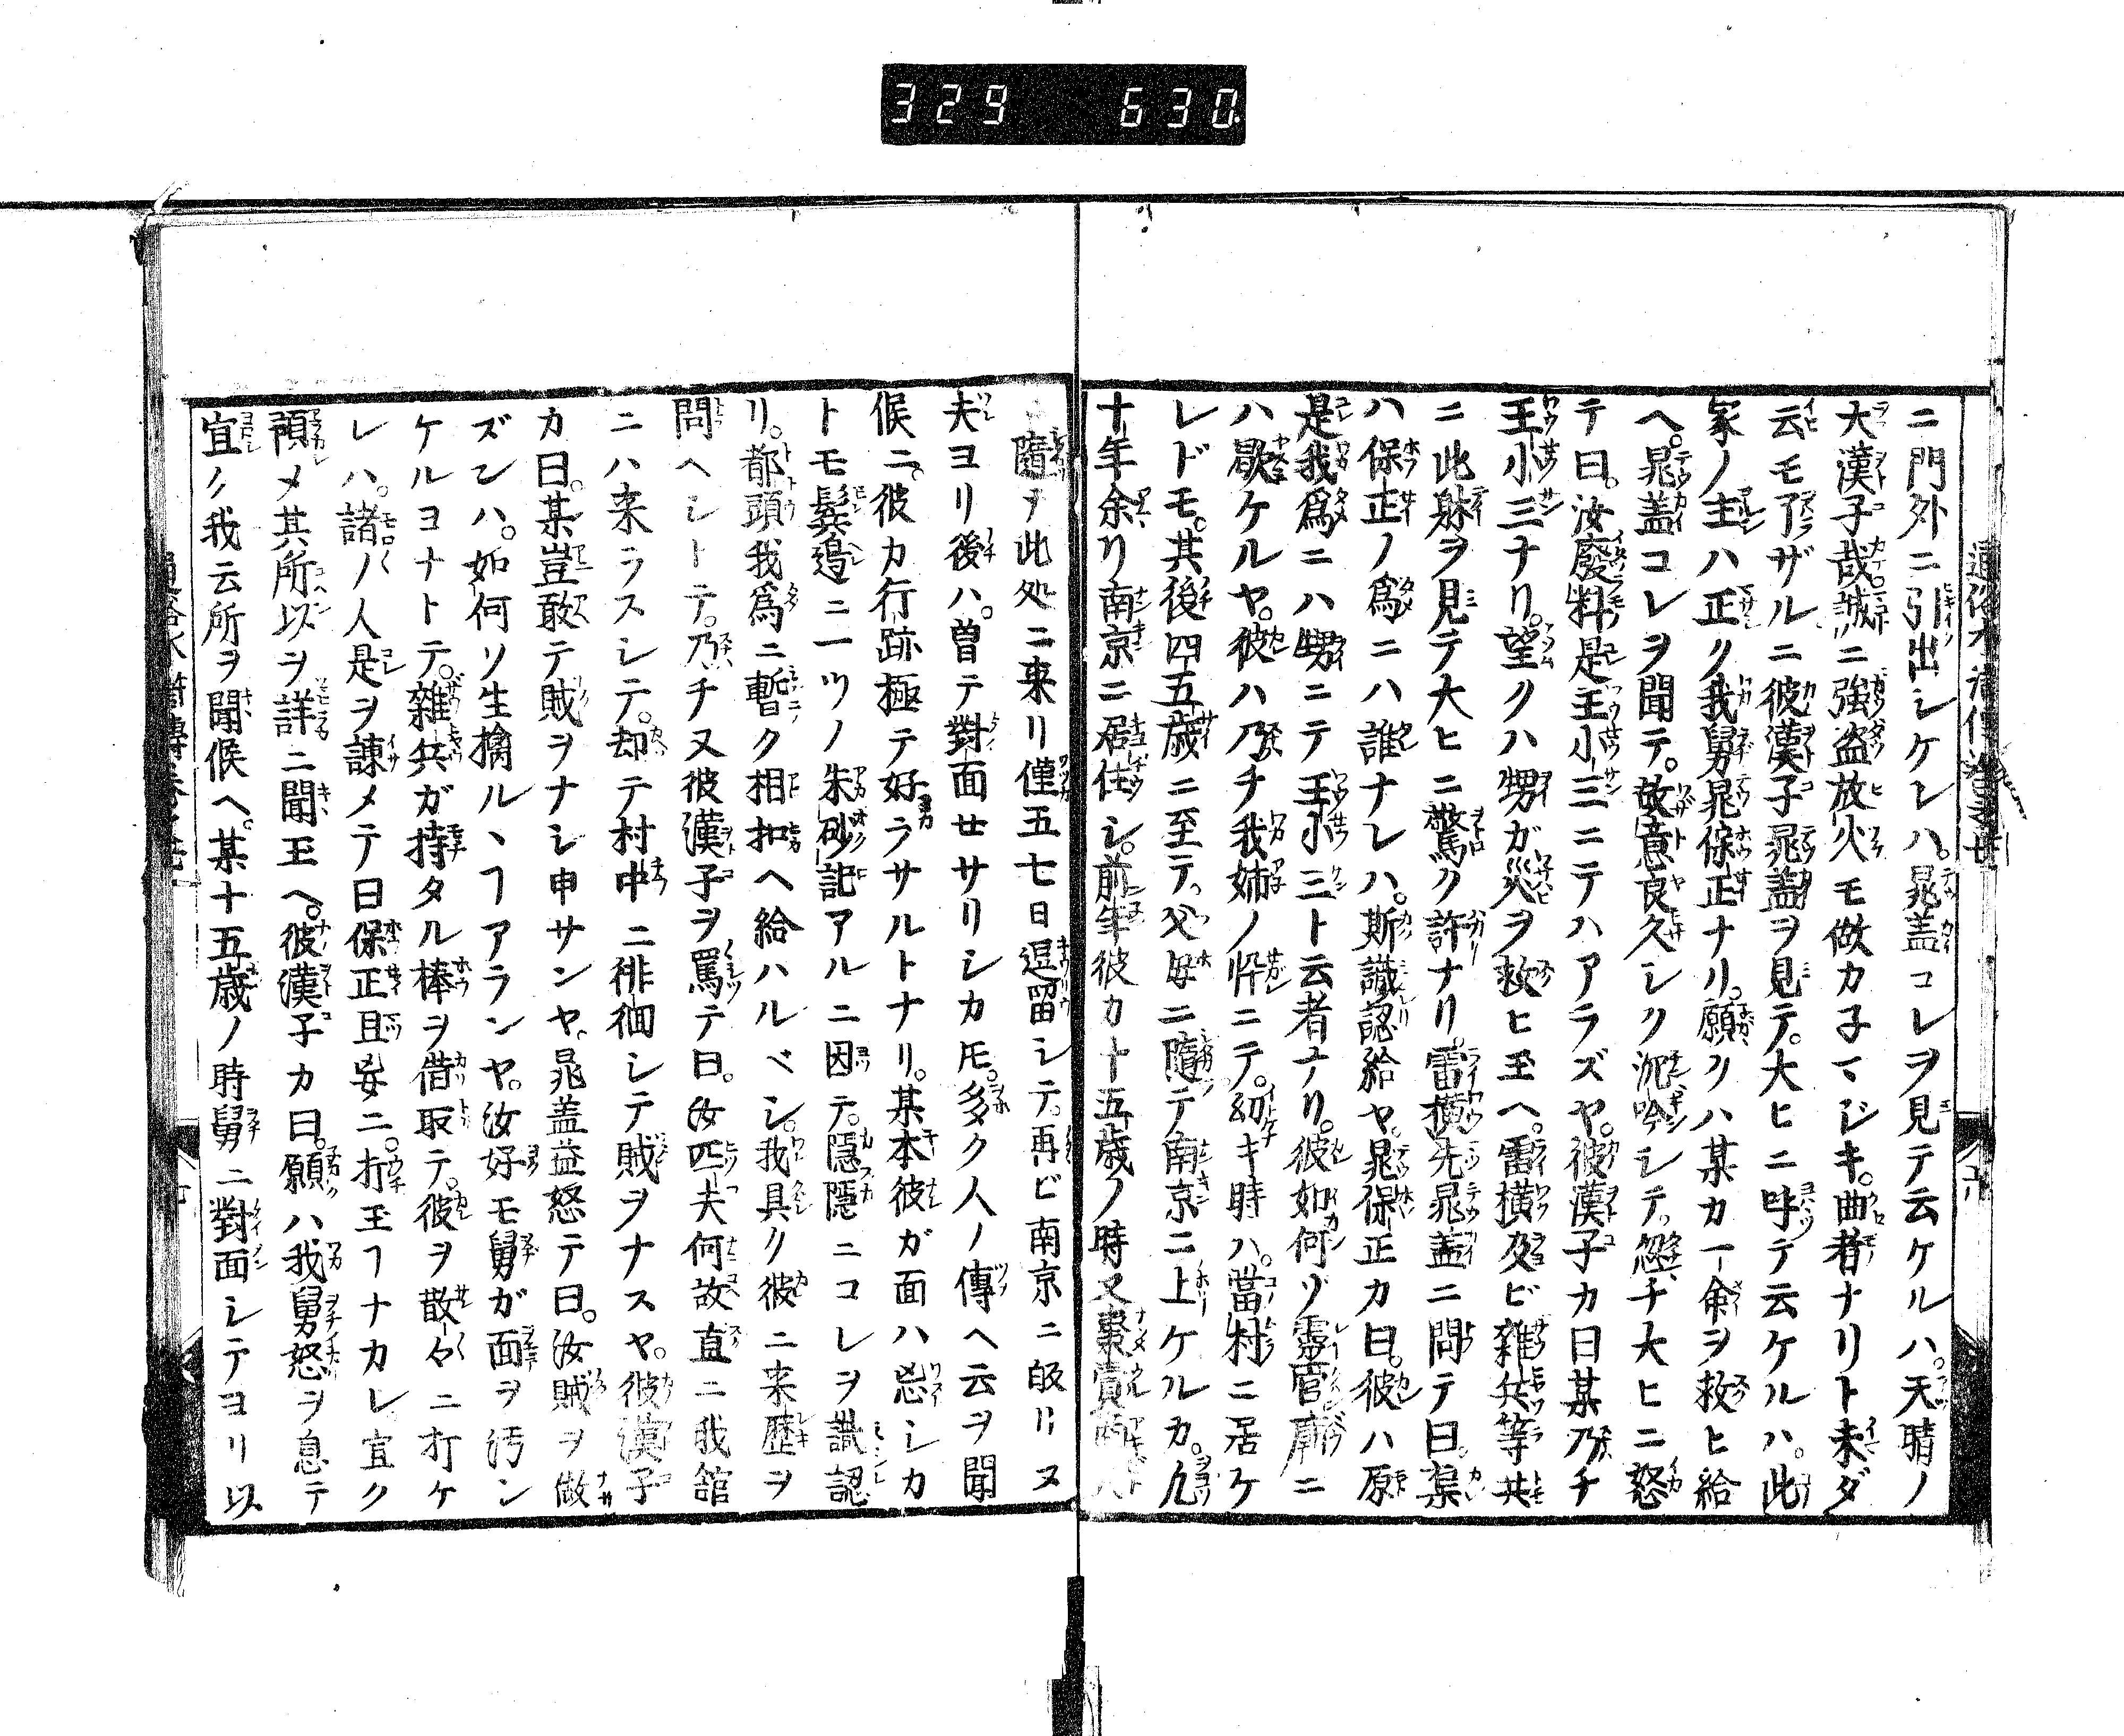 329 630
ニ門外ニ引出シケレハ。晁盖コレヲ見テ云ケルハ。天晴ノ
大漢子哉誠ニ強盗放火モ做カ子マジキ。曲者ナリト未ダ
云モ了ザルニ彼漢子晁盖ヲ見テ。大ヒニ呼テ云ケルハ。此
家ノ主ハ正ク我舅晁保正ナリ。願クハ某カ一命ヲ救ヒ給
ヘ。晁盖コレヲ聞テ。故意良久シク沉吟シテ。忽チ大ヒニ怒
テ曰。汝廢料是王小三ニテハアラズヤ。彼漢子カ曰某乃チ
王小三ナリ。望クハ甥ガ災ヲ救ヒ玉ヘ。雷横及ビ雑兵等共
ニ此躰ヲ見テ大ヒニ驚ク許ナリ。雷横先晁盖ニ問テ曰。渠
ハ保正ノ爲ニハ誰ナレハ。斯識認給ヤ。晁保正カ曰。彼ハ原
是我爲ニハ甥ニテ王小三ト云者ナリ。彼如何ゾ靈官廟ニ
ハ歇ケルヤ。彼ハ乃チ我姉ノ忰ニテ。幼キ時ハ。當村ニ居ケ
レドモ。其後四五歳ニ至テ。父母ニ隨テ南京ニ上ケルカ。凢
十年余リ南京ニ居住シ。前年彼カ十五歳ノ時又棗賣
隨ヲ此処ニ来リ僅五七日逗留シテ。再ビ南京ニ皈リヌ
夫ヨリ後ハ。曽テ對面せサリシカ𪜈。多ク人ノ傳ヘ云ヲ聞
候ニ。彼カ行跡極テ好ラサルトナリ。某本彼ガ面ハ忘シカ
トモ鬂邉ニ一ツノ朱砂記アルニ因テ。隱隱ニコレヲ識認
リ。都頭我爲ニ暫ク相扣ヘ給ハルベシ。我具ク彼ニ来歴ヲ
問ヘシトテ。乃チ又彼漢子ヲ罵テ曰。汝匹夫何故直ニ我舘
ニハ来ラスシテ。却テ村中ニ徘徊シテ賊ヲナスヤ。彼漢子
カ曰。某豈敢テ賊ヲナシ申サンヤ。晁盖益怒テ曰。汝賊ヲ做
ズンハ。如何ソ生擒ルヽヿアランヤ。汝好モ舅ガ面ヲ汚シ
ケルヨナトテ。雑兵ガ持タル棒ヲ借取テ。彼ヲ散々ニ打ケ
レハ。諸ノ人是ヲ諌メテ曰保正且妄ニ。打玉ヿナカレ。宜ク
頭メ其所以ヲ詳ニ聞玉ヘ。彼漢子カ曰。願ハ我舅怒ヲ息テ
宜ク我云所ヲ聞候ヘ。某十五歳ノ時舅ニ對面シテヨリ以